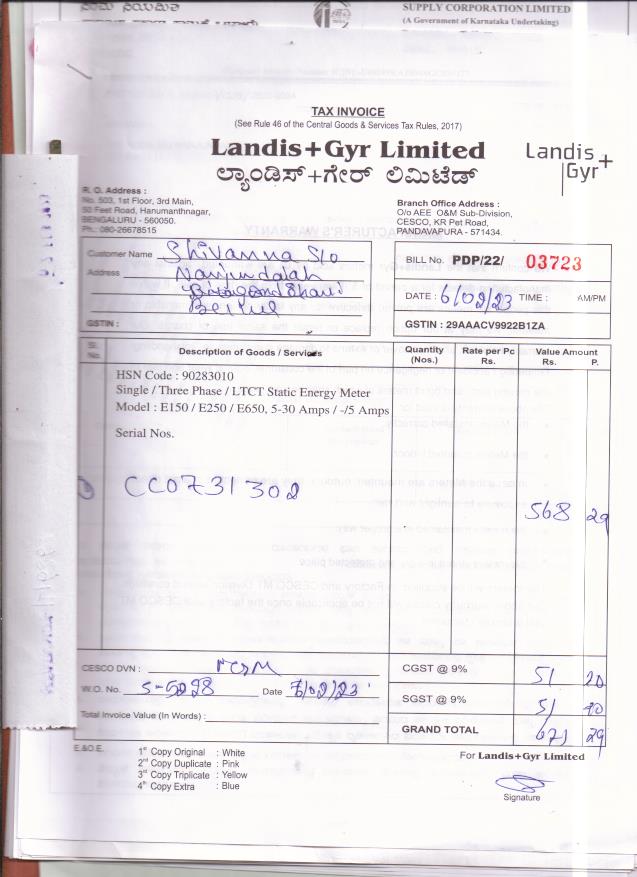 SUPPLY CORPORATION LIMITED
(A Government of Karnataka Undertaking)
TAX INVOICE
(See Rule 46 of the Central Goods & Services Tax Rules, 2017)
Landis+Gyr Limited
ಲ್ಯಾಂಡಿಸ್+ಗೇರ್ ಲಿಮಿಟೆಡ್
Landis+
Gyr
R. O. Address :
No. 503, 1st Floor, 3rd Main,
50 Feet Road, Hanumanthnagar,
BENGALURU - 560050.
Ph.: 080-26678515
Branch Office Address :
O/o AEE O&M Sub-Division,
CESCO, KR Pet Road,
PANDAVAPURA - 571434.
Customer Name Shivanna S/o
Address Nanjundaiah
GSTIN :
BILL No. PDP/22/ 03723
DATE : 6/02/23 TIME : AM/PM
GSTIN : 29AAACV9922B1ZA
Sl. No. Description of Goods / Services Quantity (Nos.) Rate per Pc Rs. Value Amount Rs. P.
HSN Code : 90283010
Single / Three Phase / LTCT Static Energy Meter
Model : E150 / E250 / E650, 5-30 Amps / -/5 Amps
Serial Nos.
CC0731302
568 29
CESCO DVN :
W.O. No. S-5028 Date 6/02/23
Total Invoice Value (In Words) :
CGST @ 9% 51
SGST @ 9% 51
GRAND TOTAL 671 29
E.&O.E.
1st Copy Original : White
2nd Copy Duplicate : Pink
3rd Copy Triplicate : Yellow
4th Copy Extra : Blue
For Landis+Gyr Limited
Signature